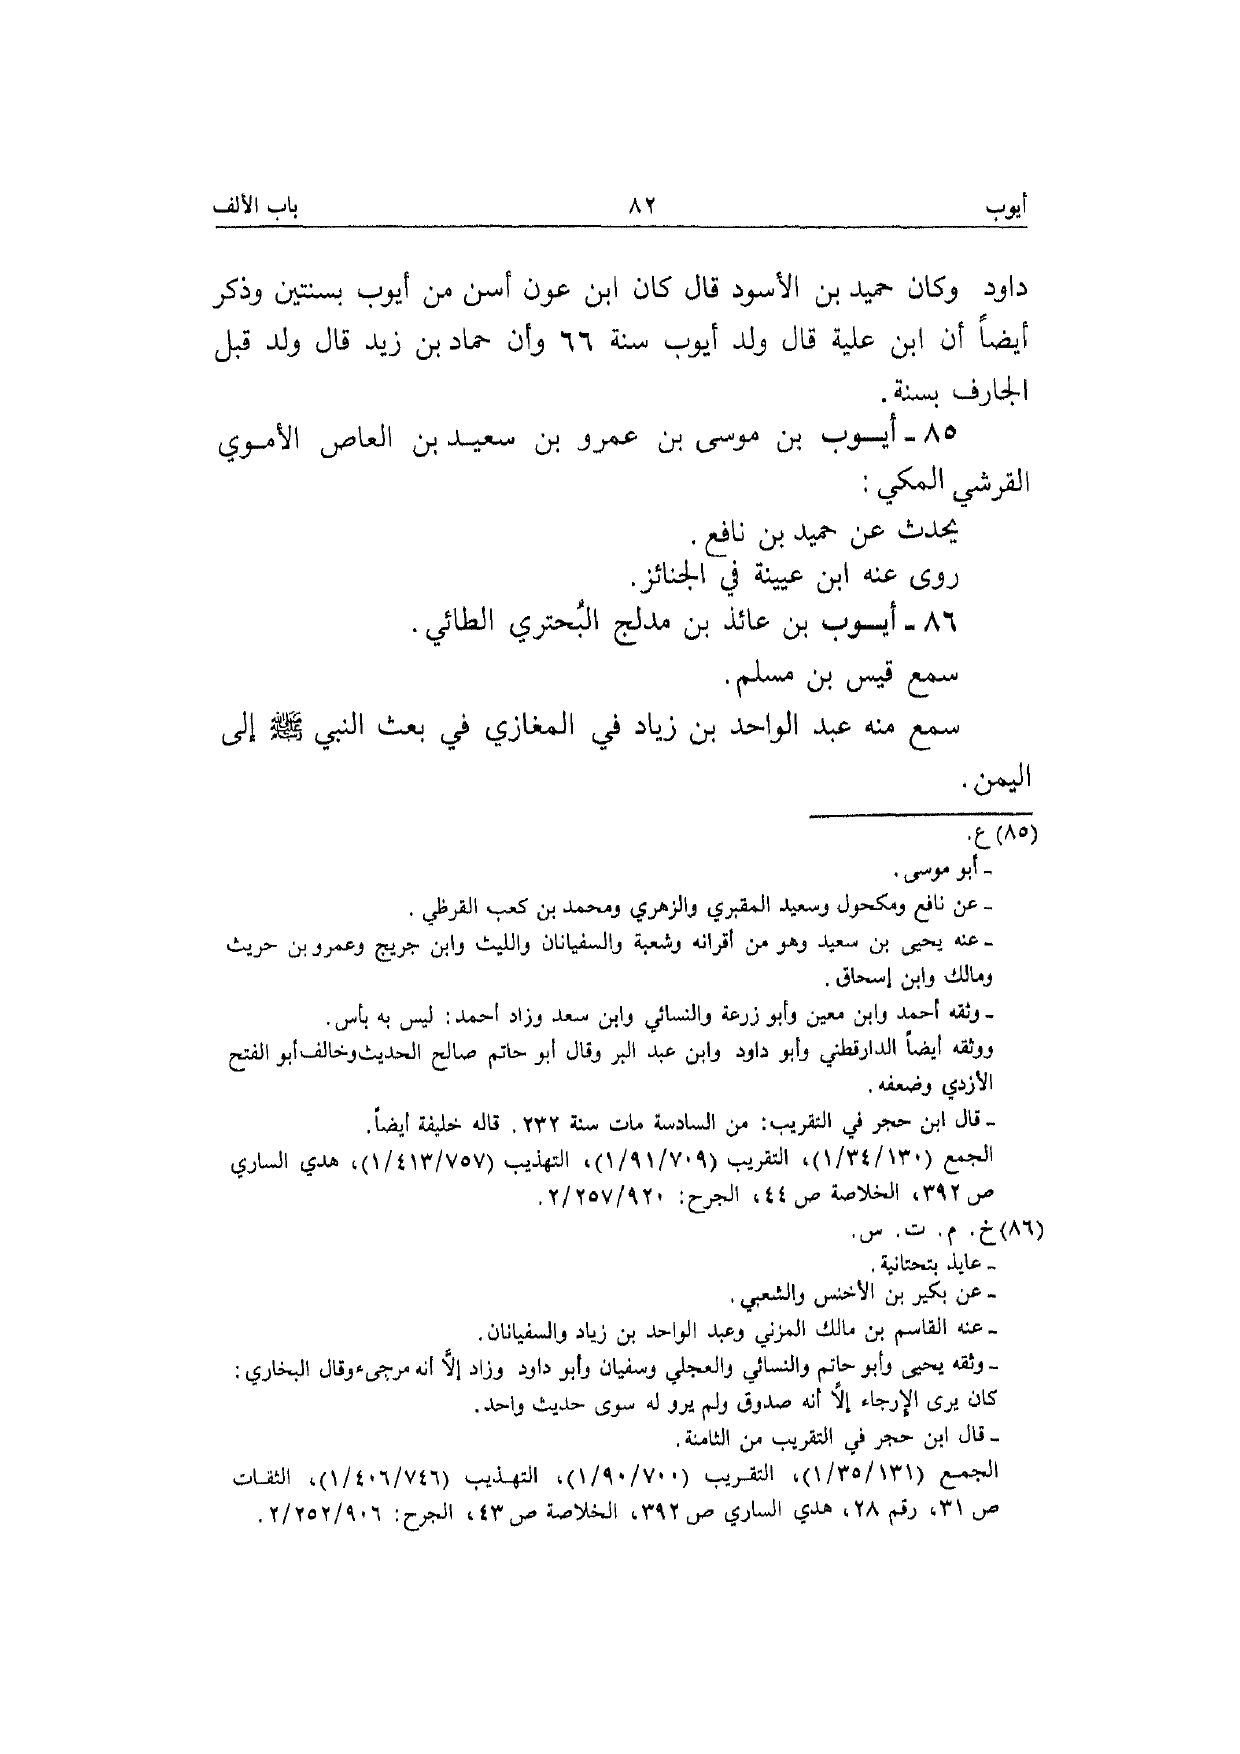 أيوب ٨٢ باب الألف
داود وكان حميد بن الأسود قال كان ابن عون أسن من أيوب بسنتين وذكر
أيضاً أن ابن علية قال ولد أيوب سنة ٦٦ وأن حماد بن زيد قال ولد قبل
الجارف بسنة .
٨٥ ـ أيـوب بن موسى بن عمرو بن سعيـد بن العاص الأمـوي
القرشي المكي :
يحدث عن حميد بن نافع .
روى عنه ابن عيينة في الجنائز.
٨٦ ـ أيـوب بن عائذ بن مدلج البُحتري الطائي .
سمع قيس بن مسلم .
سمع منه عبد الواحد بن زياد في المغازي في بعث النبي ﷺ إلى
اليمن .
(٨٥) ع.
ـ أبو موسى .
ـ عن نافع ومكحول وسعيد المقبري والزهري ومحمد بن كعب القرظي .
ـ عنه يحيى بن سعيد وهو من أقرانه وشعبة والسفيانان والليث وابن جريج وعمرو بن حريث
ومالك وابن إسحاق .
ـ وثقه أحمد وابن معين وأبو زرعة والنسائي وابن سعد وزاد أحمد: ليس به بأس.
ووثقه أيضاً الدارقطني وأبو داود وابن عبد البر وقال أبو حاتم صالح الحديث وخالف أبو الفتح
الأزدي وضعفه .
ـ قال ابن حجر في التقريب: من السادسة مات سنة ٢٣٢ . قاله خليفة أيضاً.
الجمع (١/٣٤/١٣٠)، التقريب (١/٩١/٧٠٩)، التهذيب (١/٤١٣/٧٥٧)، هدي الساري
ص ٣٩٢، الخلاصة ص ٤٤، الجرح: ٢/٢٥٧/٩٢٠.
(٨٦) خ. م. ت. س.
ـ عايذ بتحتانية .
ـ عن بكير بن الأخنس والشعبي .
ـ عنه القاسم بن مالك المزني وعبد الواحد بن زياد والسفيانان.
ـ وثقه يحيى وأبو حاتم والنسائي والعجلي وسفيان وأبو داود وزاد إلاَّ أنه مرجىء وقال البخاري:
كان يرى الإرجاء إلاَّ أنه صدوق ولم يرو له سوى حديث واحد.
ـ قال ابن حجر في التقريب من الثامنة.
الجمـع (١/٣٥/١٣١)، التقـريب (١/٩٠/٧٠٠)، التهـذيب (١/٤٠٦/٧٤٦)، الثقـات
ص ٣١، رقم ٢٨، هدي الساري ص ٣٩٢، الخلاصة ص ٤٣، الجرح: ٢/٢٥٢/٩٠٦ .